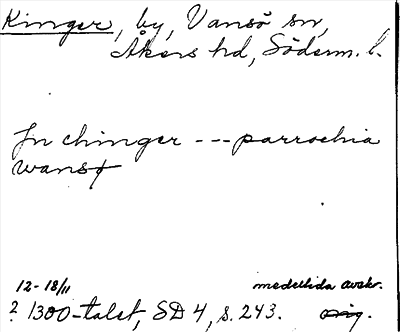 Kinger, by, Vansö sn,
Åkers hd, Söderm. l.
Jn chinger --- parrochia
wansø
12-18/11 medeltida avskr.
? 1300-talet, SD 4, s. 243. orig.